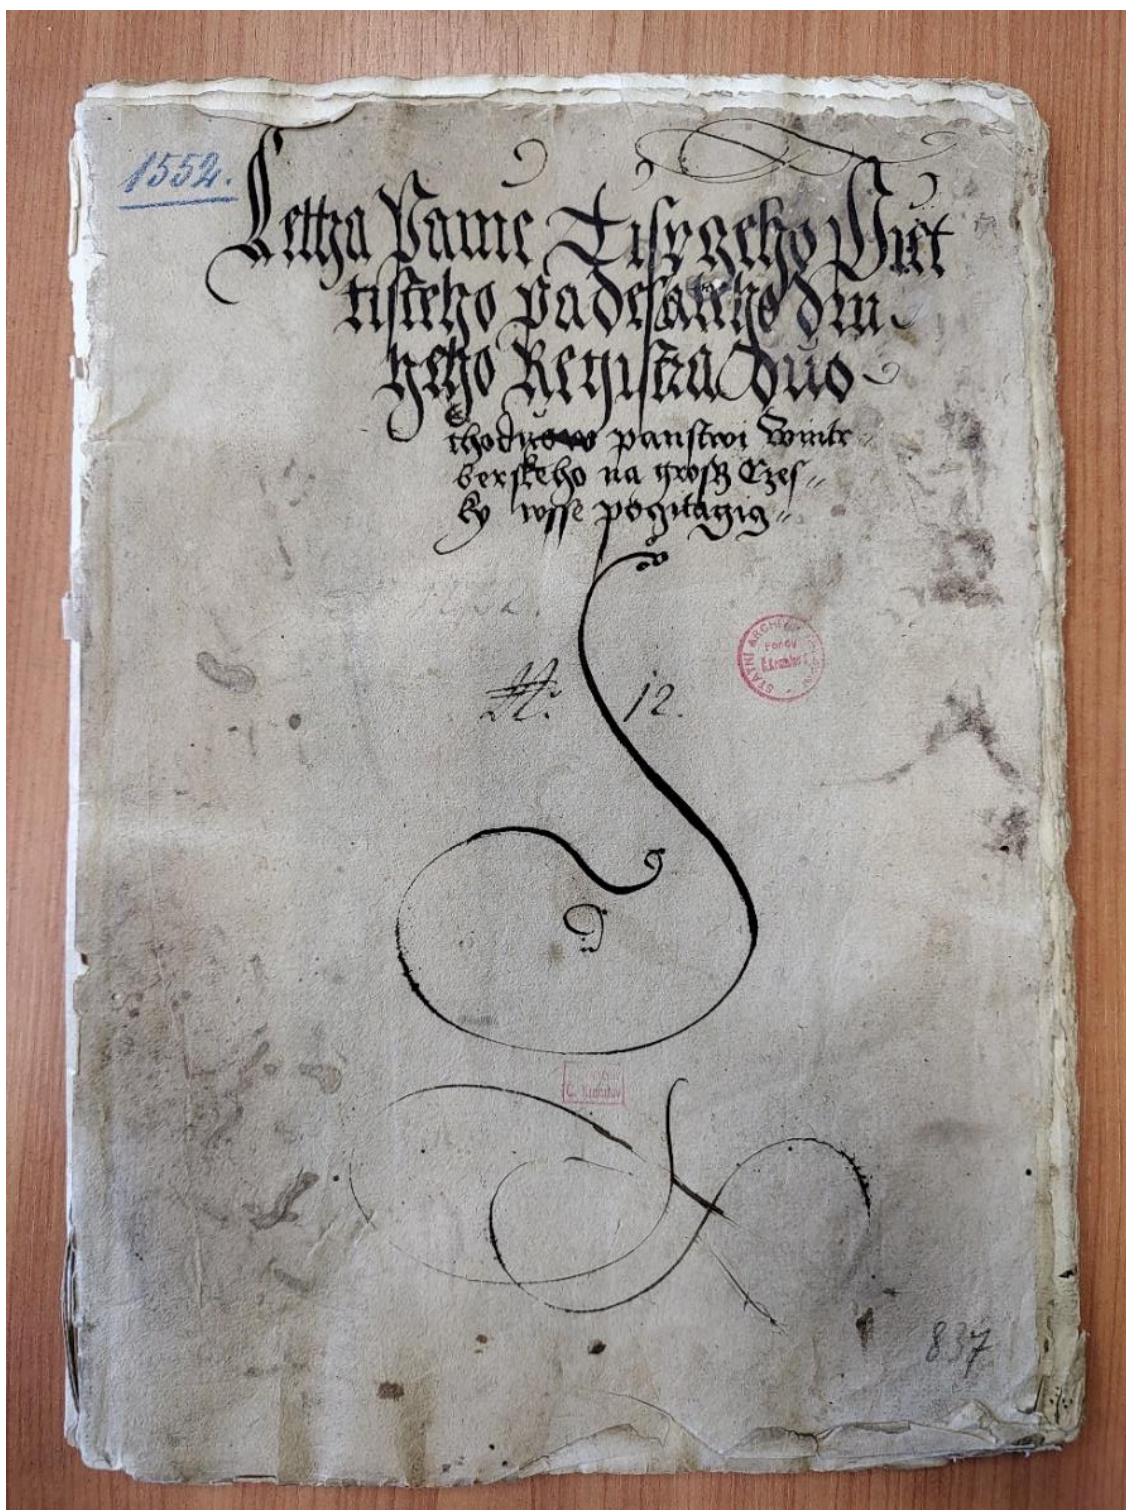 1552.
Lettha Panie Tisyczeho Piet
tisteho padesateho dru
heho Registra duo
choduow panstwi Wintr
berskeho na grossz Czes
ky wsse pogitagicz
12.
STATNI ARCHIV
FONDY
Č. Krumlov
837